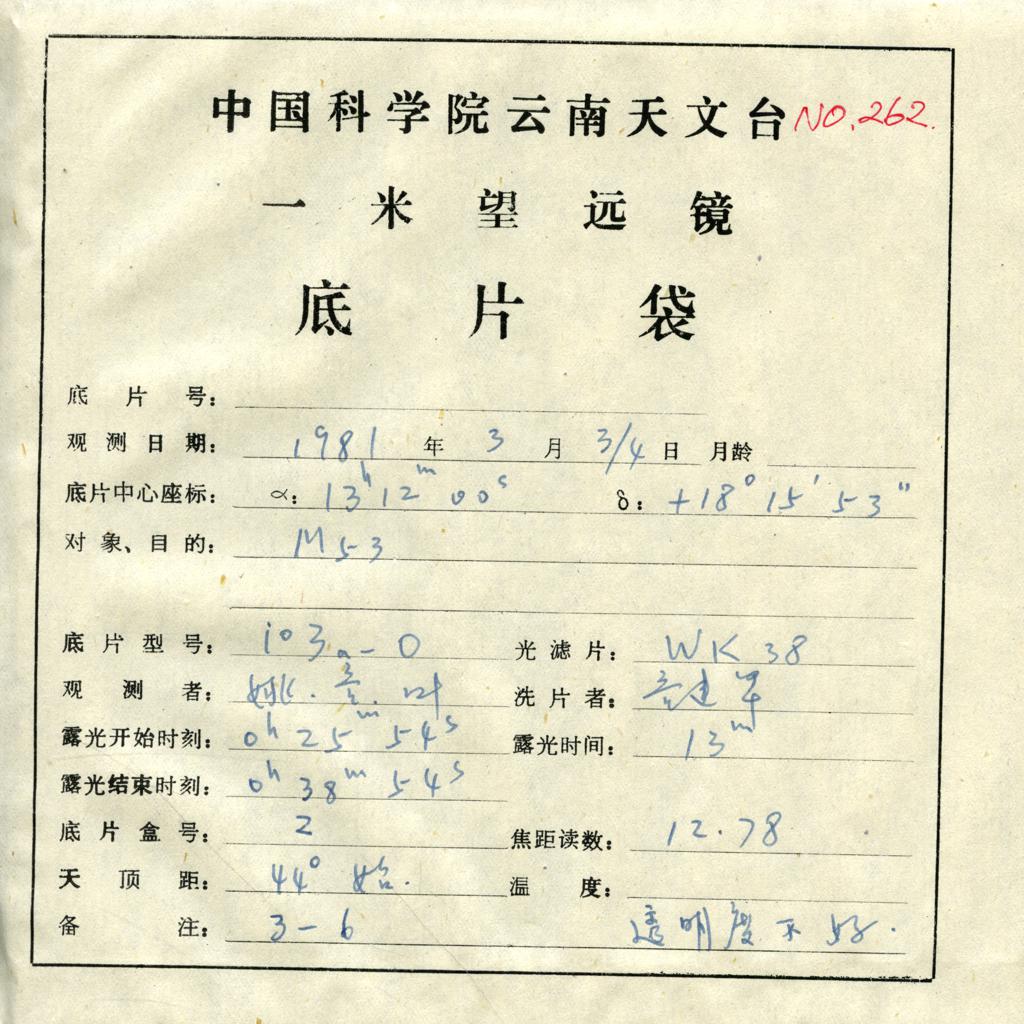 中国科学院云南天文台 NO.262.
一米望远镜
底片袋
底片号：
观测日期： 1981 年 3 月 3/4 日 月龄
底片中心座标： α： 13h 12m 00s δ： +18° 15′ 53″
对象、目的： M53
底片型号： 103a-O 光滤片： WK 38
观测者： 姚. 叶 洗片者： 建军
露光开始时刻： 0h 25m 54s 露光时间： 13m
露光结束时刻： 0h 38m 54s
底片盒号： 2 焦距读数： 12.78
天顶距： 44° 始. 温度：
备注： 3-6 透明度不好.